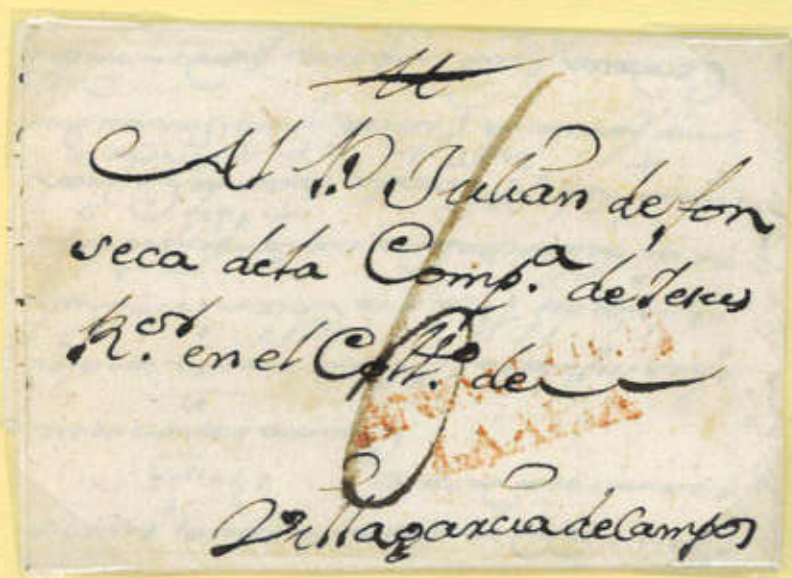 Al P. Julian de fon
seca de la Comp.a de Jesus
R.or en el Coll.o de
Villagarcia de Campos